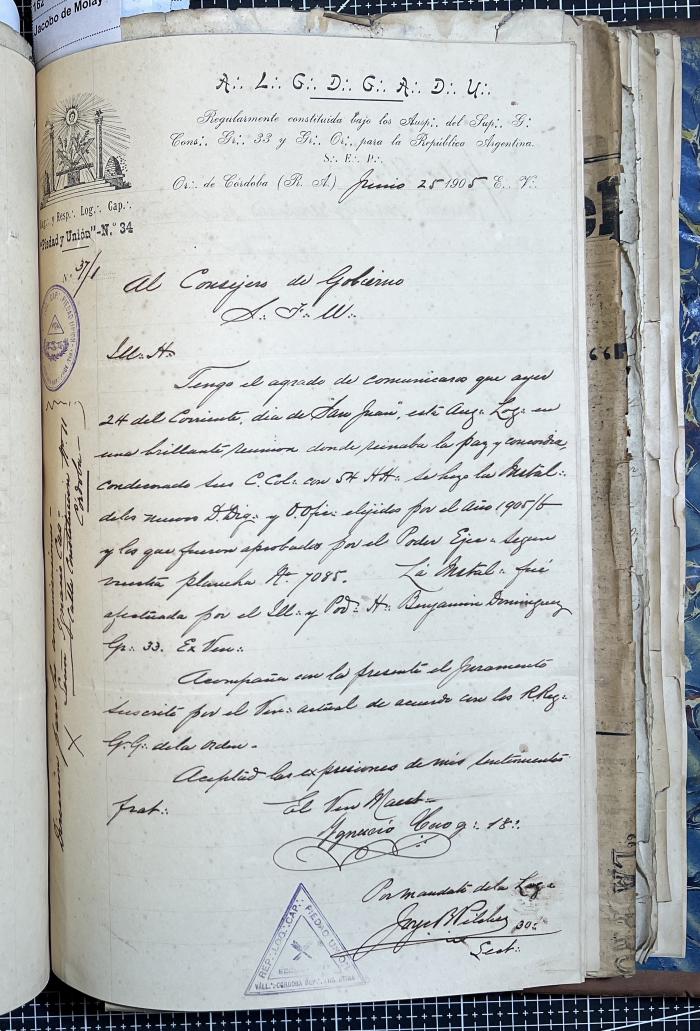 162
Jacobo de Molay
A∴ L∴ G∴ D∴ G∴ A∴ D∴ U∴
Regularmente constituida bajo los Ausp∴ del Sup∴ G∴
Cons∴ Gr∴ 33 y Gr∴ Or∴ para la República Argentina.
S∴ E∴ P∴
Or∴ de Córdoba (R. A.) Junio 25 1905 E∴ V∴
y Resp∴ Log∴ Cap∴
"Piedad y Unión"-N.º 34
N.º 37/1
Al Consejero de Gobierno
S∴ F∴ U∴
Ill∴ H∴
Tengo el agrado de comunicaros que ayer
24 del Corriente, dia de "San Juan", esta Aug∴ Log∴ en
una brillante reunion donde reinaba la paz y concordia,
condecorado sus C. Col∴ con 54 HH∴ se hizo la Instal∴
delos nuevos D. Dig∴ y O. Ofic∴ elejidos por el Año 1905/6
y los que fueron aprobados por el Poder Ejec∴ segun
vuestra plancha Nº 7085. La Instal∴ fué
efectuada por el Ill∴ y Pod∴ H∴ Benjamin Dominguez
Gr∴ 33. Ex Ven∴
Acompaña con la presente el Juramento
suscrito por el Ven∴ actual de acuerdo con los R. Reg∴
G. G∴ de la orden.
Aceptad las expresiones de mis sentimientos
frat∴
El Ven Maest∴
Ygnacio 18∴
Por mandato de la Log∴
Jorge 30∴
Sect∴
Dirección para la
Señor Ignacio
Calle Constitucion Nº 11
Córdoba
X
REP∴ LOG∴ CAP∴ PIEDAD Y UNION
VALL∴ CORDOBA